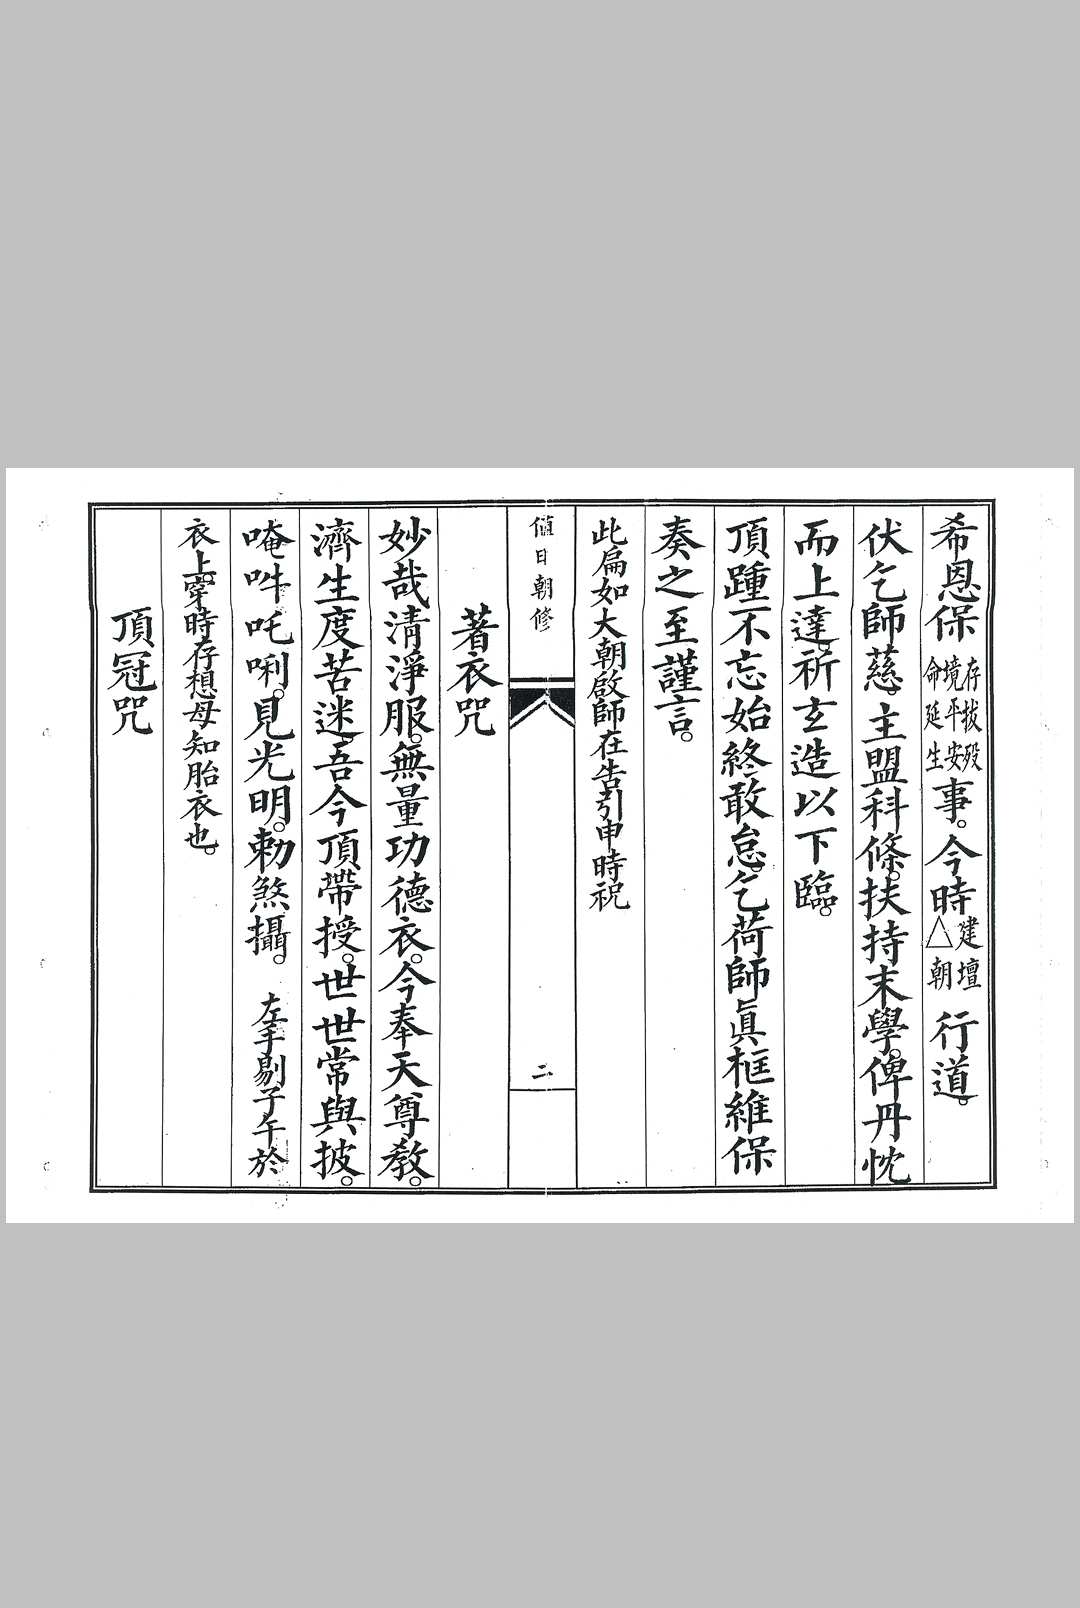 希恩保存拔歿境平安命延生事。今時建壇△朝行道。
伏乞師慈。主盟科條。扶持末學。俾丹忱
而上達。祈玄造以下臨。
頂踵不忘始終敢怠。乞荷師眞框維保
奏之至謹言。
此扁如大朝啟師在告引申時祝
值日朝修 二
著衣咒
妙哉清淨服。無量功德衣。今奉天尊教。
濟生度苦迷。吾今頂帶授。世世常與披。
唵吽吒唎。見光明。勅煞攝。 左手剔子午於
衣上。穿時存想母知胎衣也。
頂冠咒